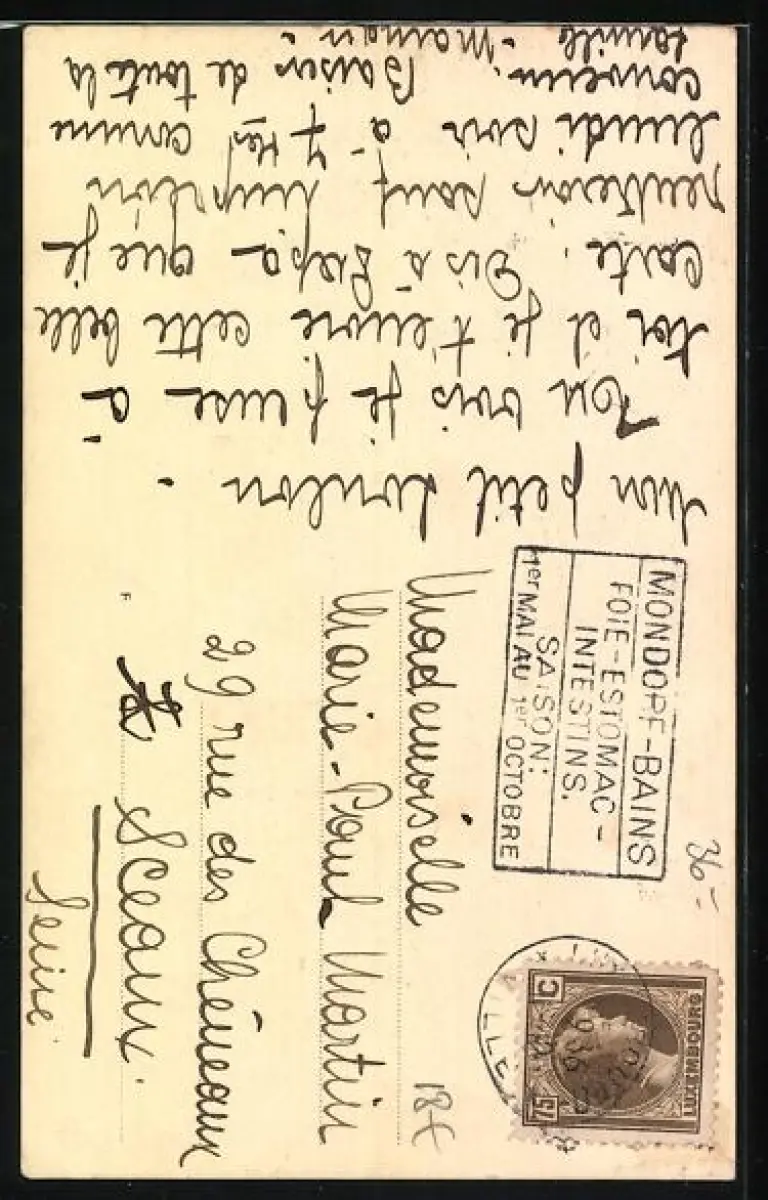 Mon petit
Tu vois je pense à
toi et je t'envoie cette belle
carte. Dis à Papa que je
rentrerai sauf imprévu
lundi soir à 7 hes comme
convenu. Baisers de toute la
famille. Maman.
MONDORF-BAINS
FOIE-ESTOMAC-
INTESTINS.
SAISON:
1er MAI AU 1er OCTOBRE
36-
LUXEMBOURG
75 C
Mademoiselle
Marie-Paule Martin
29 rue des Chéneaux
Sceaux.
Seine
18€